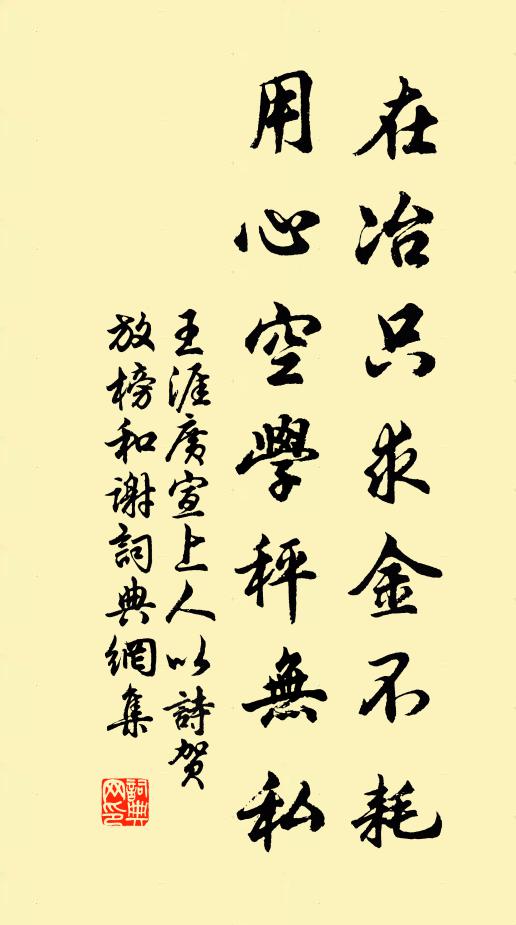 在冶只求金不耗
用心空學秤無私
王涯廣宣上人以詩賀
放榜和謝詞典網集
詞典
网印